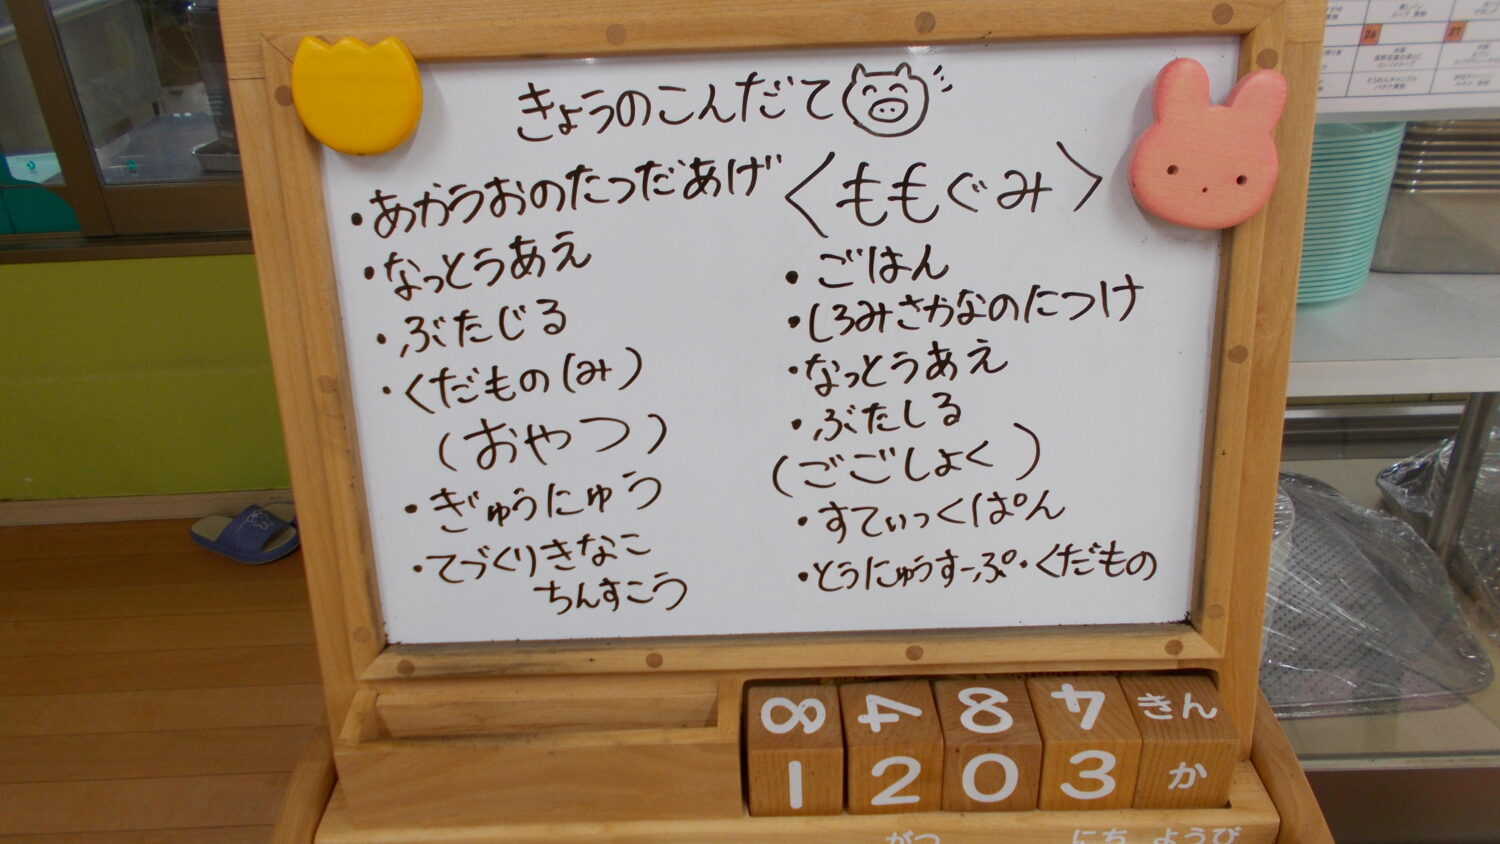 きょうのこんだて
・あかうおのたつだあげ
・なっとうあえ
・ぶたじる
・くだもの(み)
(おやつ)
・ぎゅうにゅう
・てづくりきなこ
ちんすこう
〈ももぐみ〉
・ごはん
・しろみさかなのたつけ
・なっとうあえ
・ぶたしる
(ごごしょく)
・すてぃっくぱん
・とうにゅうすーぷ・くだもの
8 4 8 4 きん
1 2 0 3 か
がつ にち ようび
26 27